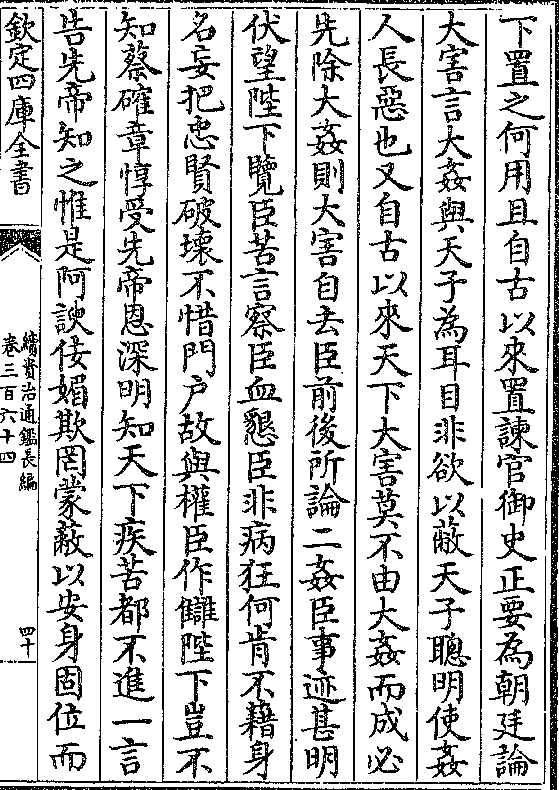 下置之何用且自古以來置諫官御史正要為朝廷論
大害言大姦與天子為耳目非欲以蔽天子聰明使姦
人長惡也又自古以來天下大害莫不由大姦而成必
先除大姦則大害自去臣前後所論二姦臣事迹甚明
伏望陛下覽臣苦言察臣血懇臣非病狂何肯不藉身
名妄把忠賢破壞不惜門户故與權臣作讎陛下豈不
知蔡確章惇受先帝恩深明知天下疾苦都不進一言
告先帝知之惟是阿諛佞媚欺罔蒙蔽以安身固位而
欽定四庫全書
續資治通鑑長編
卷三百六十四
四十